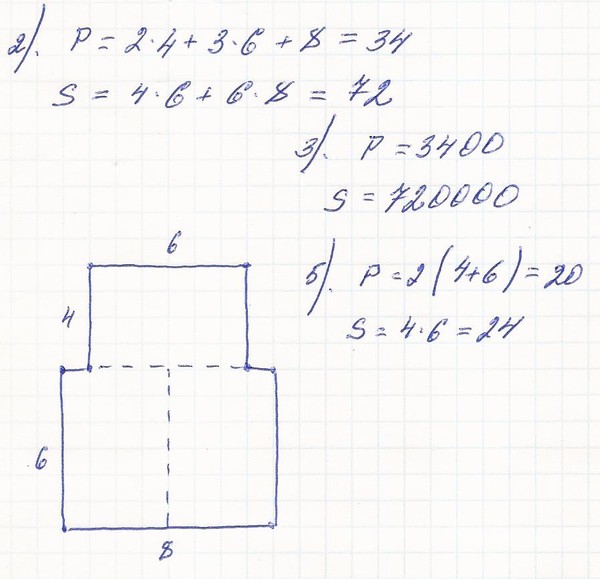 2). P = 2·4 + 3·6 + 8 = 34
S = 4·6 + 6·8 = 72
3). P = 3400
S = 720000
5). P = 2(4+6) = 20
S = 4·6 = 24
6
4
6
8